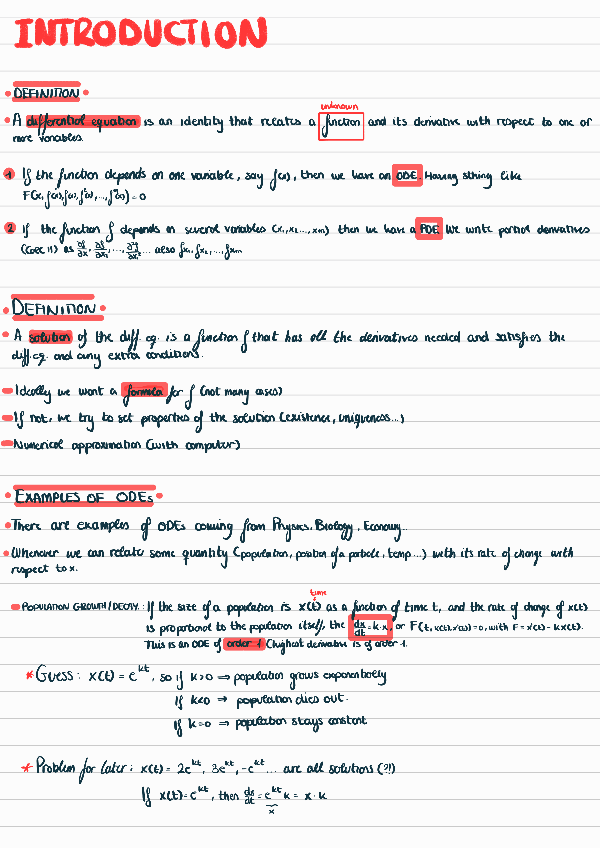 INTRODUCTION
DEFINITION
unknown
• A differential equation is an identity that relates a function and its derivative with respect to one or
more variables.
1 If the function depends on one variable, say f(x), then we have an ODE. Having string like
F(x, f(x), f'(x), f''(x), ..., fⁿ(x)) = 0
2 If the function f depends on several variables (x₁, x₂, ..., xₘ) then we have a PDE. We write partial derivatives
also fx₁, fx₂, ..., fxₘ
DEFINITION
• A solution of the diff. eq. is a function f that has all the derivatives needed and satisfies the
diff. eq. and any extra conditions.
Ideally we want a formula for f (not many cases)
If not, we try to set properties of the solution (existence, uniqueness...)
Numerical approximation (with computer)
EXAMPLES OF ODEs
• There are examples of ODEs coming from Physics, Biology, Economy...
• Whenever we can relate some quantity (population, position of a particle, temp...) with its rate of change with
respect to x.
time
POPULATION GROWTH/DECAY: If the size of a population is x(t) as a function of time t, and the rate of change of x(t)
is proportional to the population itself, the dx/dt = k·x, or F(t, x(t), x'(t)) = 0, with F = x'(t) - kx(t).
This is an ODE of order 1 (highest derivative is of order 1.
* Guess: x(t) = e^kt, so if k>0 ⇒ population grows exponentially
if k<0 ⇒ population dies out.
if k=0 ⇒ population stays constant
* Problem for later: x(t) = 2e^kt, 3e^kt, -e^kt ... are all solutions (?!)
If x(t) = e^kt, then dx/dt = e^kt k = x·k
x